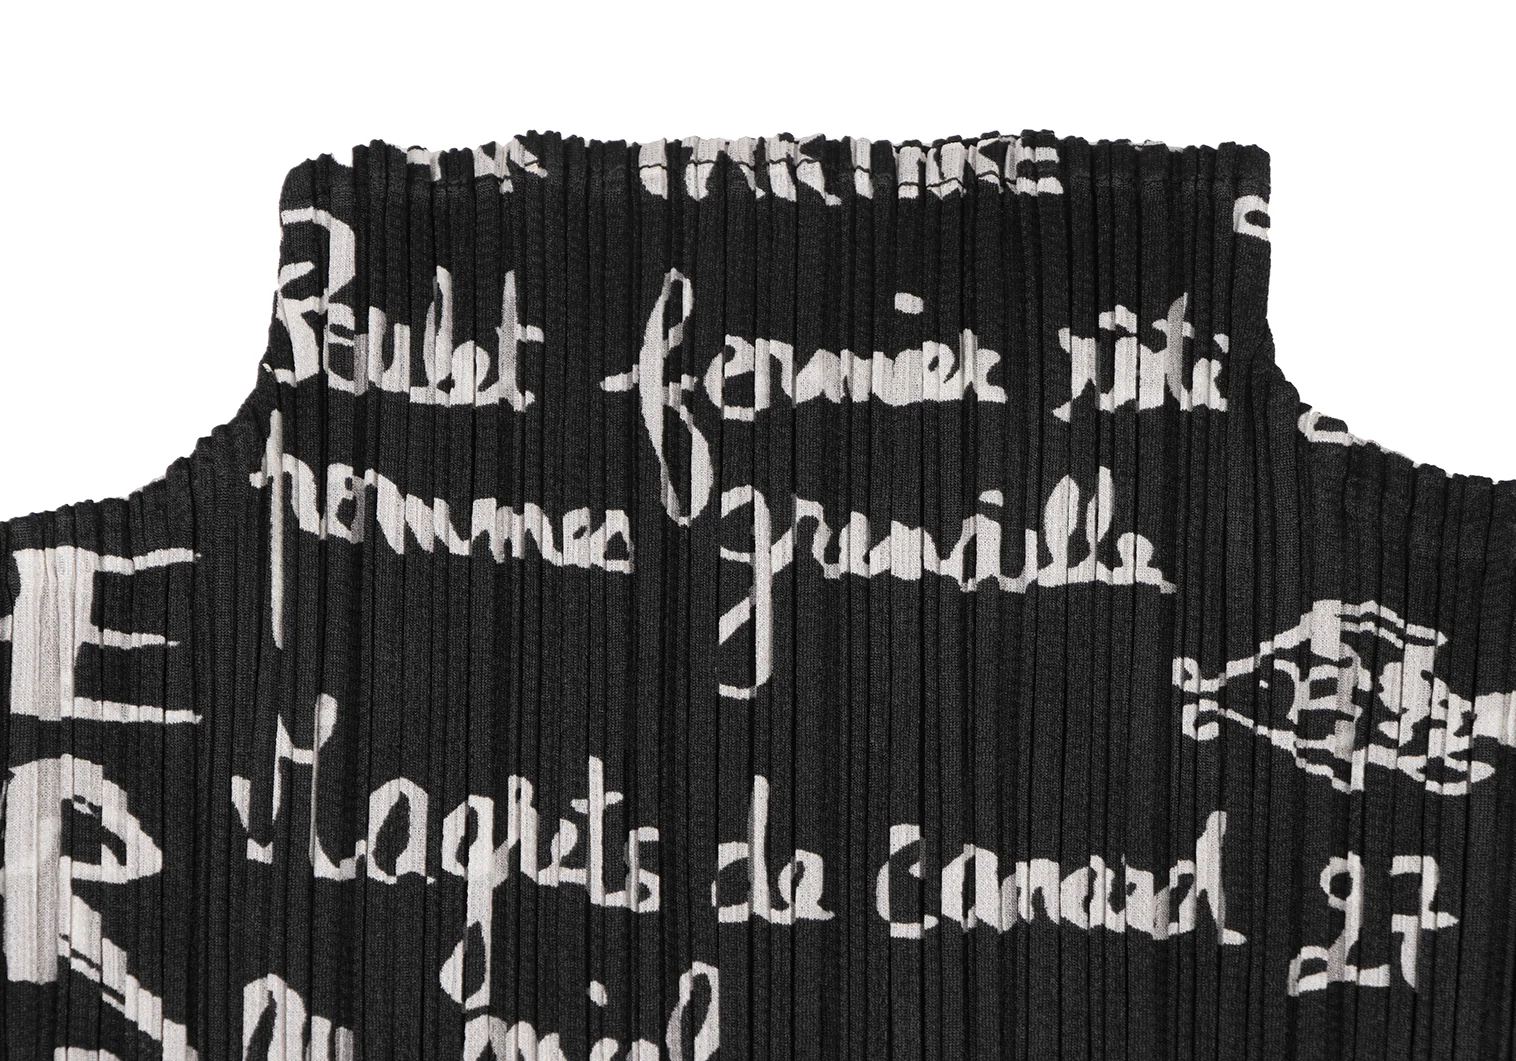 Poulet fermier rôti
pommes grenaille
E
Magrets de canard 27
R
au miel